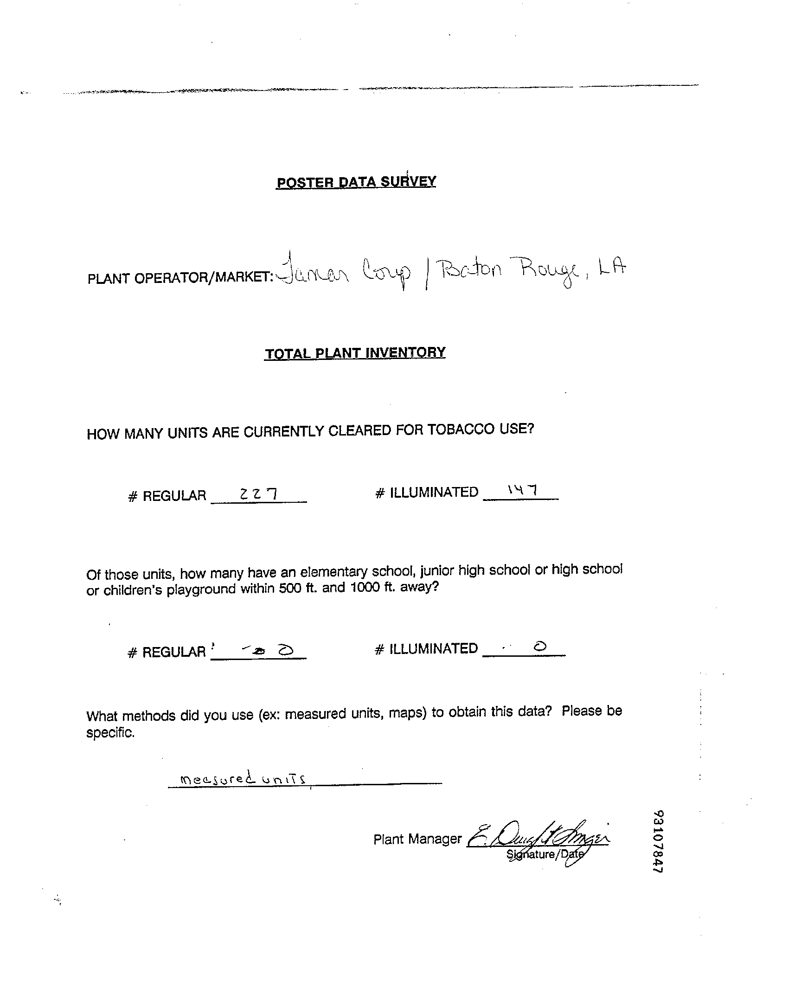 POSTER DATA SURVEY
PLANT OPERATOR/MARKET: Lamar Corp / Baton Rouge, LA
TOTAL PLANT INVENTORY
HOW MANY UNITS ARE CURRENTLY CLEARED FOR TOBACCO USE?
# REGULAR 227 # ILLUMINATED 147
Of those units, how many have an elementary school, junior high school or high school
or children's playground within 500 ft. and 1000 ft. away?
# REGULAR 0 # ILLUMINATED 0
What methods did you use (ex: measured units, maps) to obtain this data? Please be
specific.
measured units
Plant Manager E.
Signature/Date
93107847